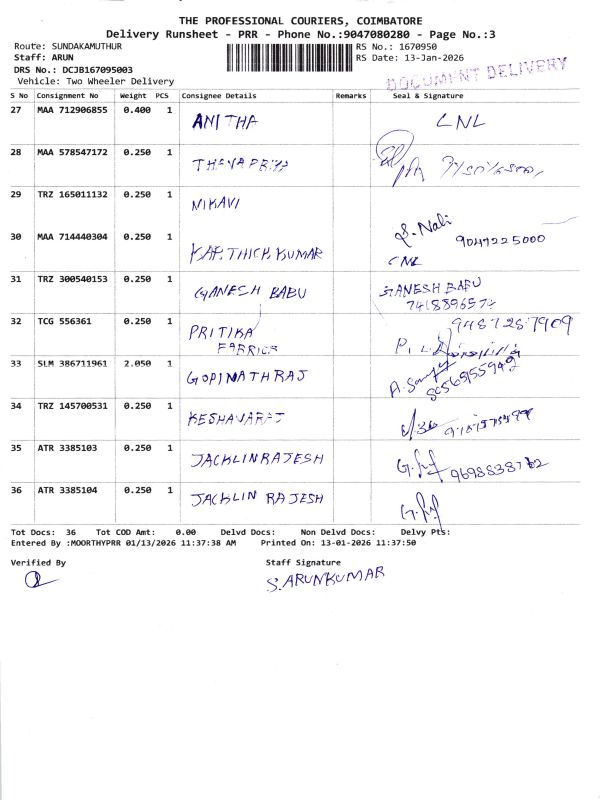 THE PROFESSIONAL COURIERS, COIMBATORE
Delivery Runsheet - PRR - Phone No.:9047080280 - Page No.:3
Route: SUNDAKAMUTHUR RS No.: 1670950
Staff: ARUN RS Date: 13-Jan-2026
DRS No.: DCJB167095003
Vehicle: Two Wheeler Delivery
DOCUMENT DELIVERY
S No Consignment No Weight PCS Consignee Details Remarks Seal & Signature
27 MAA 712906855 0.400 1 ANITHA CNL
28 MAA 578547172 0.250 1
29 TRZ 165011132 0.250 1 NIKAVI
30 MAA 714440304 0.250 1 KARTHICK KUMAR 9047225000
CNL
31 TRZ 300540153 0.250 1 GANESH BABU GANESH BABU
32 TCG 556361 0.250 1 PRITIKA FABRICS 9487287909
33 SLM 386711961 2.050 1 GOPINATHRAJ
34 TRZ 145700531 0.250 1 KESHAVARAJ
35 ATR 3385103 0.250 1 JACKLINRAJESH
36 ATR 3385104 0.250 1 JACKLIN RAJESH
Tot Docs: 36 Tot COD Amt: 0.00 Delvd Docs: Non Delvd Docs: Delvy Pts:
Entered By :MOORTHYPRR 01/13/2026 11:37:38 AM Printed On: 13-01-2026 11:37:50
Verified By Staff Signature
S. ARUNKUMAR